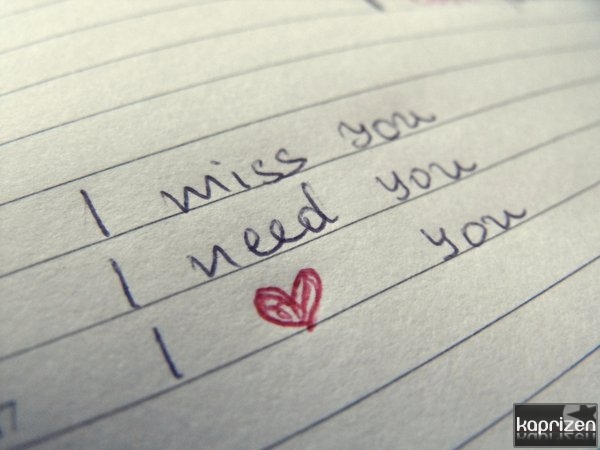 I miss you
I need you
I ❤ you
kaprizen